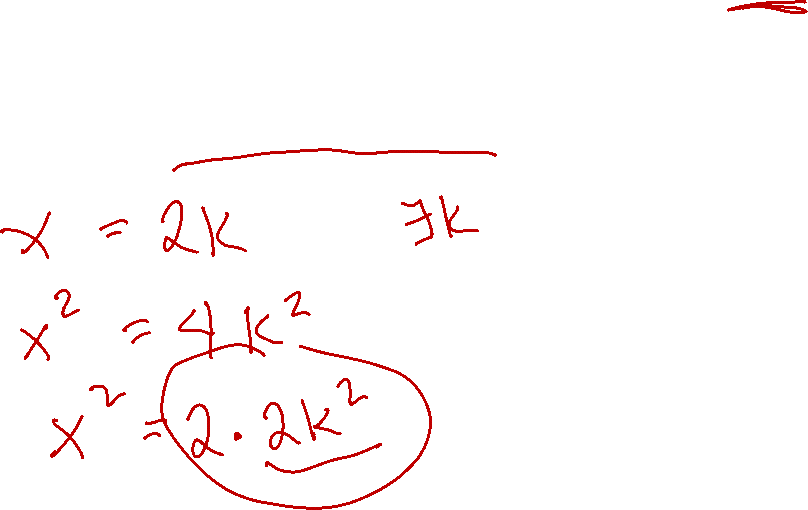 x = 2k ∃k
x² = 4k²
x² = 2 · 2k²